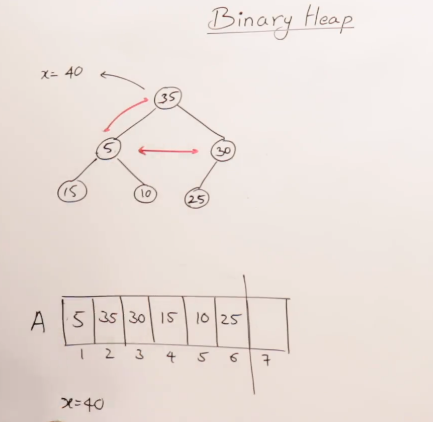 Binary Heap
x= 40
35
5 30
15 10 25
A 5 35 30 15 10 25
1 2 3 4 5 6 7
x=40